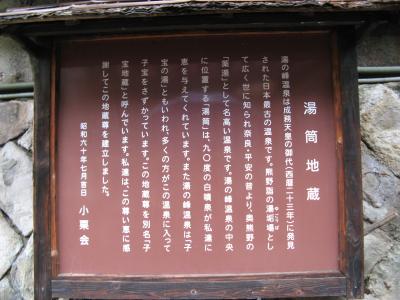 湯筒地蔵
湯の峰温泉は成務天皇の御代(西暦二十三年)に発見
された日本最古の温泉です。熊野詣の湯垢場とし
て広く世に知られ奈良・平安の昔より、奥熊野の
「薬湯」として名高い温泉です。湯の峰温泉の中央
に位置する「湯筒」は、九〇度の自噴泉が私達に
恵を与えてくれています。また湯の峰温泉は「子
宝の湯」ともいわれ、多くの方がこの温泉に入って
子宝をさずかっています。この地蔵尊を別名「子
宝地蔵」と呼んでいます。私達は、この尊い恵に感
謝してこの地蔵尊を建立しました。
昭和六十年七月吉日 小栗会